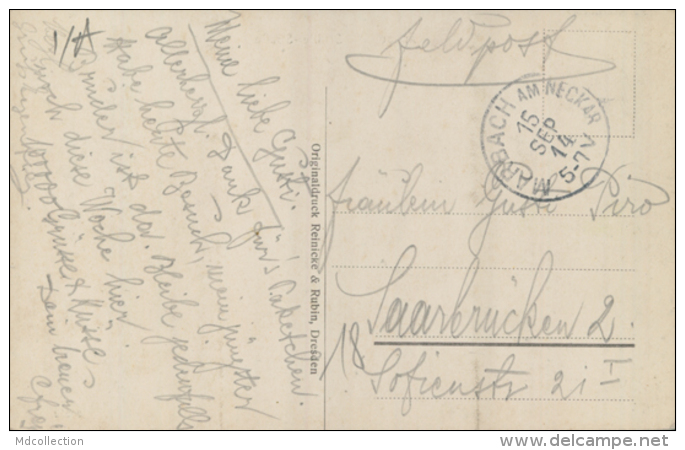 Feldpost
MARBACH AM NECKAR
15 SEP 14
5-7 V
Fräulein Gusti Piro
Saarbrücken 2.
Sofienstr 21 I
18
Originaldruck Reinicke & Rubin, Dresden
Meine liebe Gusti!
Allerherzl. Dank für's Paketchen.
Habe heute Besuch, mein jüngster
Bruder ist da. Bleibe jedenfalls
noch diese Woche hier.
100000 Grüsse & Küsse
Dein treuer
Mdcollection
delcampe.net